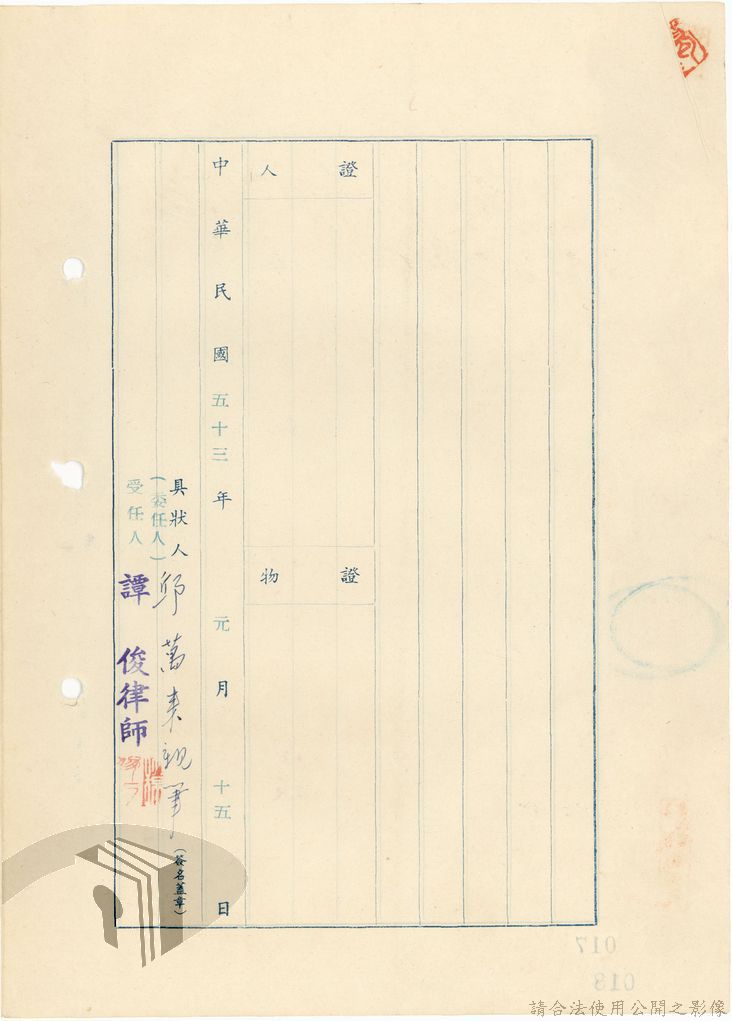 證人
證物
中華民國五十三年元月十五日
具狀人 邱萬來親筆（簽名蓋章）
（委任人）
受任人 譚俊律師
017
018
請合法使用公開之影像